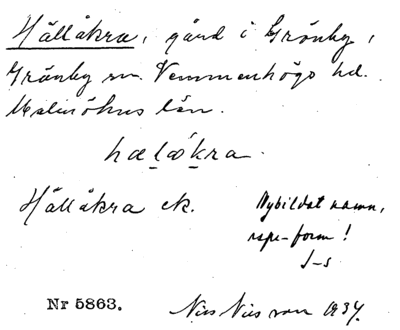 Hällåkra, gård i Grönby,
Grönby sn. Vemmenhögs hd.
Malmöhus län.
hælåkra.
Hällåkra ek.
Nybildat namn,
rspr-form!
J-s
Nr 5863.
Nils Nilsson 1934.